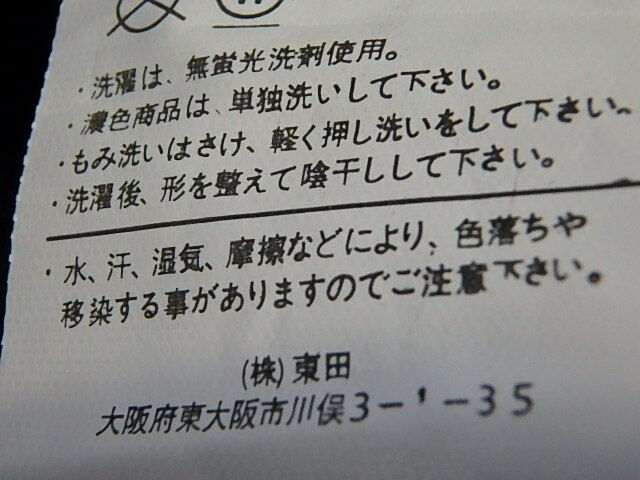 ・洗濯は、無蛍光洗剤使用。
・濃色商品は、単独洗いして下さい。
・もみ洗いはさけ、軽く押し洗いをして下さい、
・洗濯後、形を整えて陰干しして下さい。
・水、汗、湿気、摩擦などにより、色落ちや
移染する事がありますのでご注意下さい。
(株)東田
大阪府東大阪市川俣3-1-35